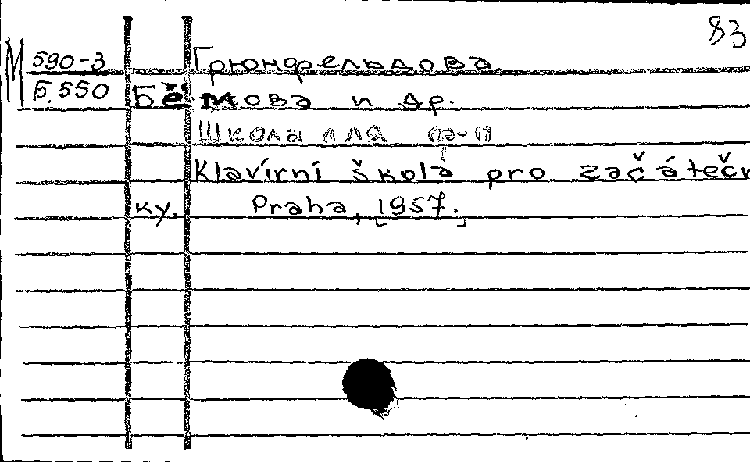 83
М 590-3
Б.550
Грюнфельдова
Бёмова и др.
Школа для
Klavírní škola pro začáteč
ky. Praha, [1957.]